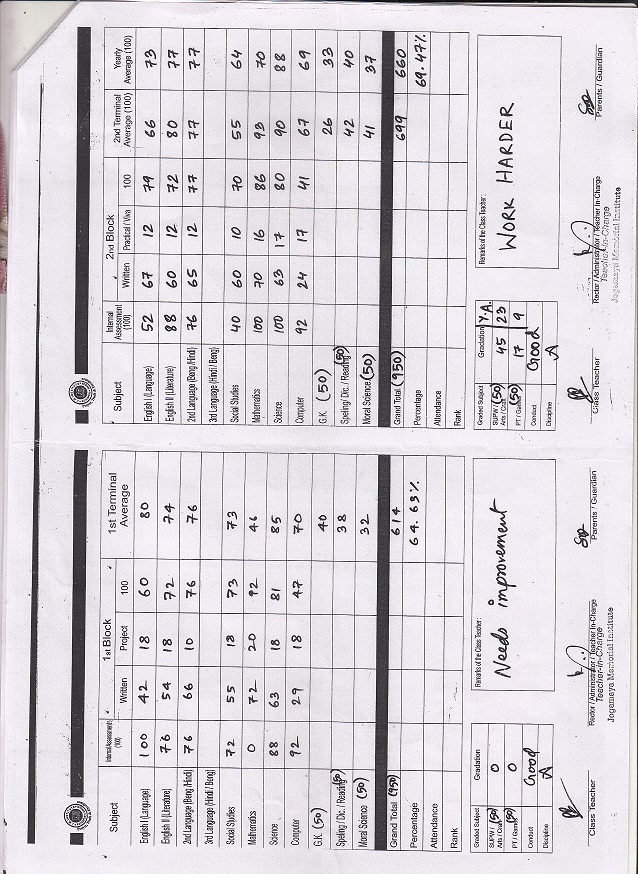 Subject Internal Assessment (100) 1st Block Written Project 100 1st Terminal Average
English I (Language) 100 42 18 60 80
English II (Literature) 76 54 18 72 74
2nd Language (Beng /Hindi) 76 66 10 76 76
3rd Language (Hindi / Beng)
Social Studies 72 55 18 73 73
Mathematics 0 72 20 92 46
Science 88 63 18 81 85
Computer 92 29 18 47 70
G.K. (50) 40
Speling / Dic. / Reading (50) 38
Moral Science (50) 32
Grand Total (950) 614
Percentage 64.63%
Attendance
Rank
Graded Subject Gradation
SUPW / Arts / Craft (50) 0
PT / Games (50) 0
Conduct Good
Discipline A
Remarks of the Class Teacher :
Needs improvement
Class Teacher
Rector / Administrator / Teacher In-Charge
Teacher-in-Charge
Jogamaya Memorial Institute
Parents / Guardian
Subject Internal Assessment (100) 2nd Block Written Practical / Viva 100 2nd Terminal Average (100) Yearly Average (100)
English I (Language) 52 67 12 79 66 73
English II (Literature) 88 60 12 72 80 77
2nd Language (Beng /Hindi) 76 65 12 77 77 77
3rd Language (Hindi / Beng)
Social Studies 40 60 10 70 55 64
Mathematics 100 70 16 86 93 70
Science 100 63 17 80 90 88
Computer 92 24 17 41 67 69
G.K. (50) 26 33
Speling / Dic. / Reading (50) 42 40
Moral Science (50) 41 37
Grand Total (950) 699 660
Percentage 69.47%
Attendance
Rank
Graded Subject Gradation Y.A.
SUPW / Arts / Craft (50) 45 23
PT / Games (50) 17 9
Conduct Good
Discipline A
Remarks of the Class Teacher :
WORK HARDER
Class Teacher
Rector / Administrator / Teacher In-Charge
Teacher-in-Charge
Jogamaya Memorial Institute
Parents / Guardian